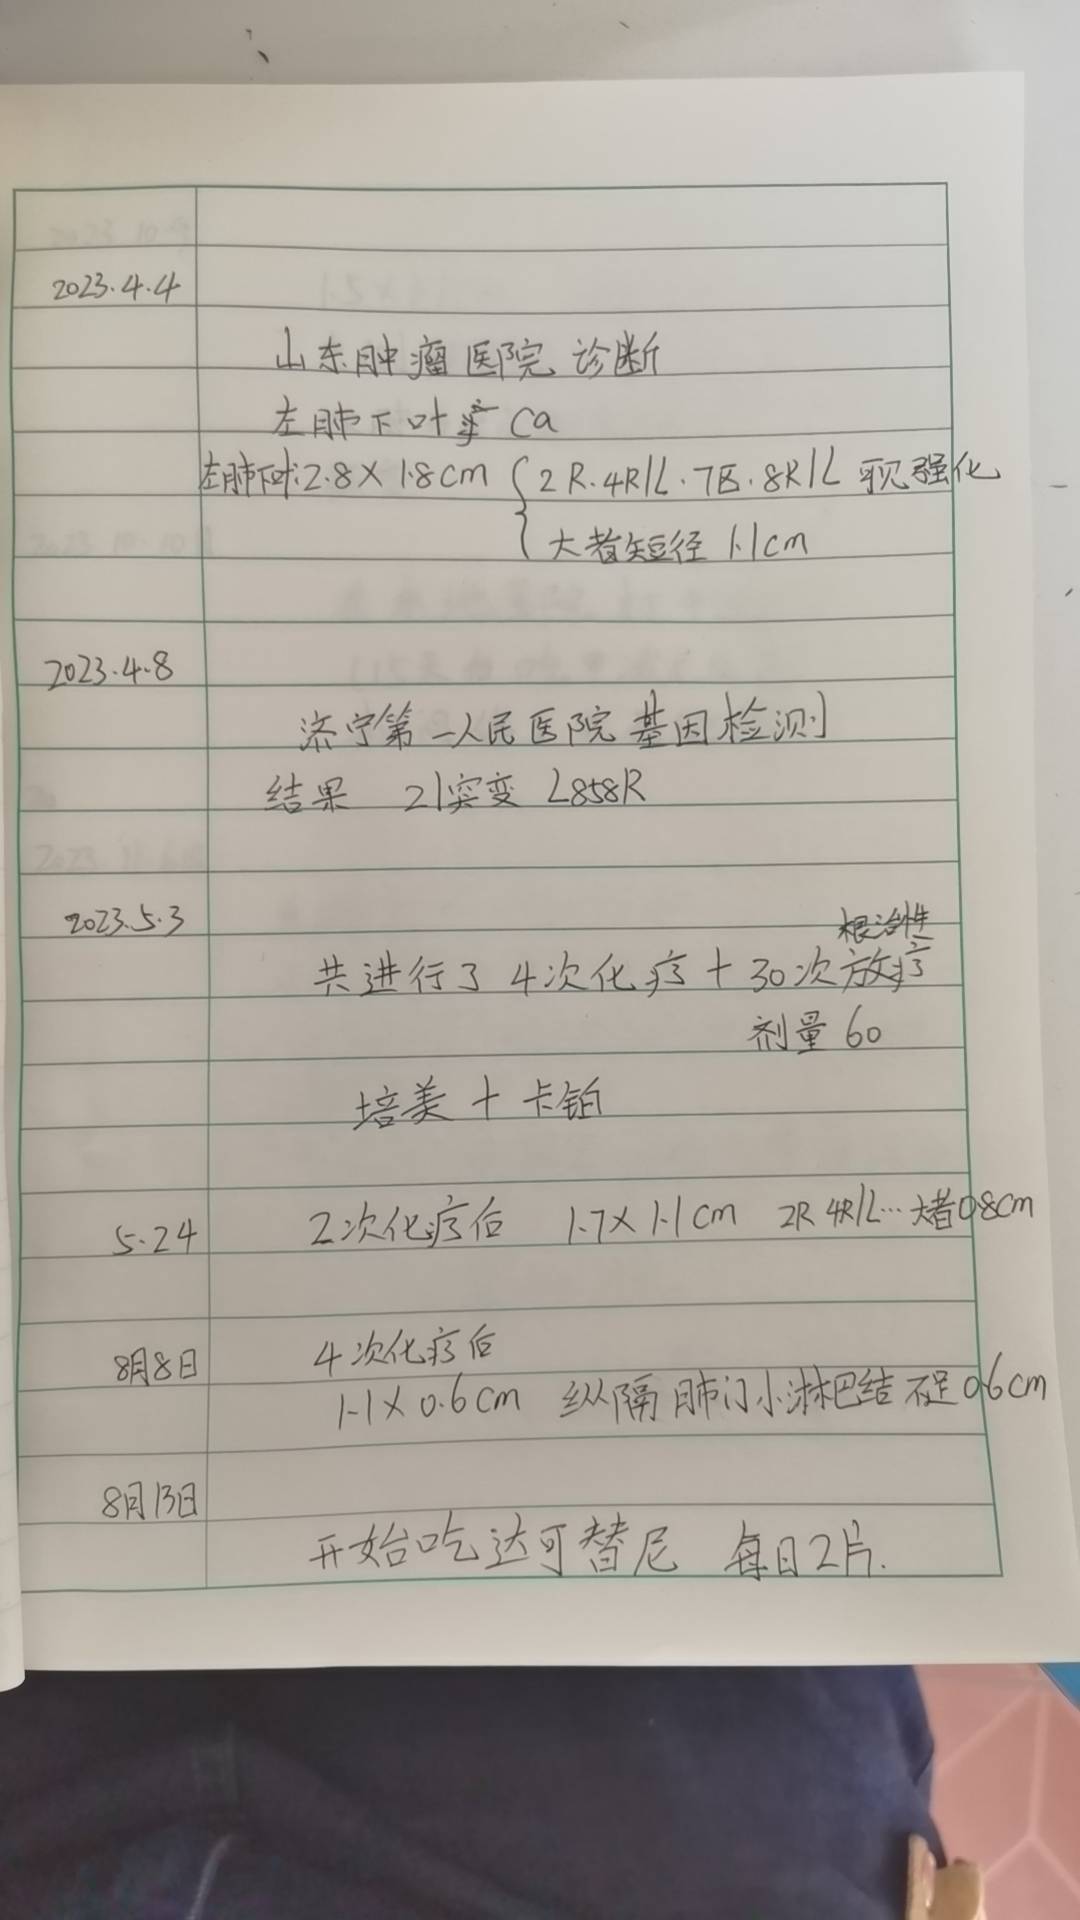 2023.4.4
山东肿瘤医院 诊断
左肺下叶 Ca
左肺下叶2.8×1.8cm 2R.4R/L.7区.8R/L 可见强化
大者短径 1.1cm
2023.4.8
济宁第一人民医院基因检测
结果 21突变 L858R
2023.5.3
根治性
共进行了 4次化疗+30次放疗
剂量 60
培美+卡铂
5.24 2次化疗后 1.7×1.1cm 2R 4R/L…大者0.8cm
8月8日 4次化疗后
1.1×0.6cm 纵隔肺门小淋巴结 不足0.6cm
8月13日
开始吃达可替尼 每日2片.